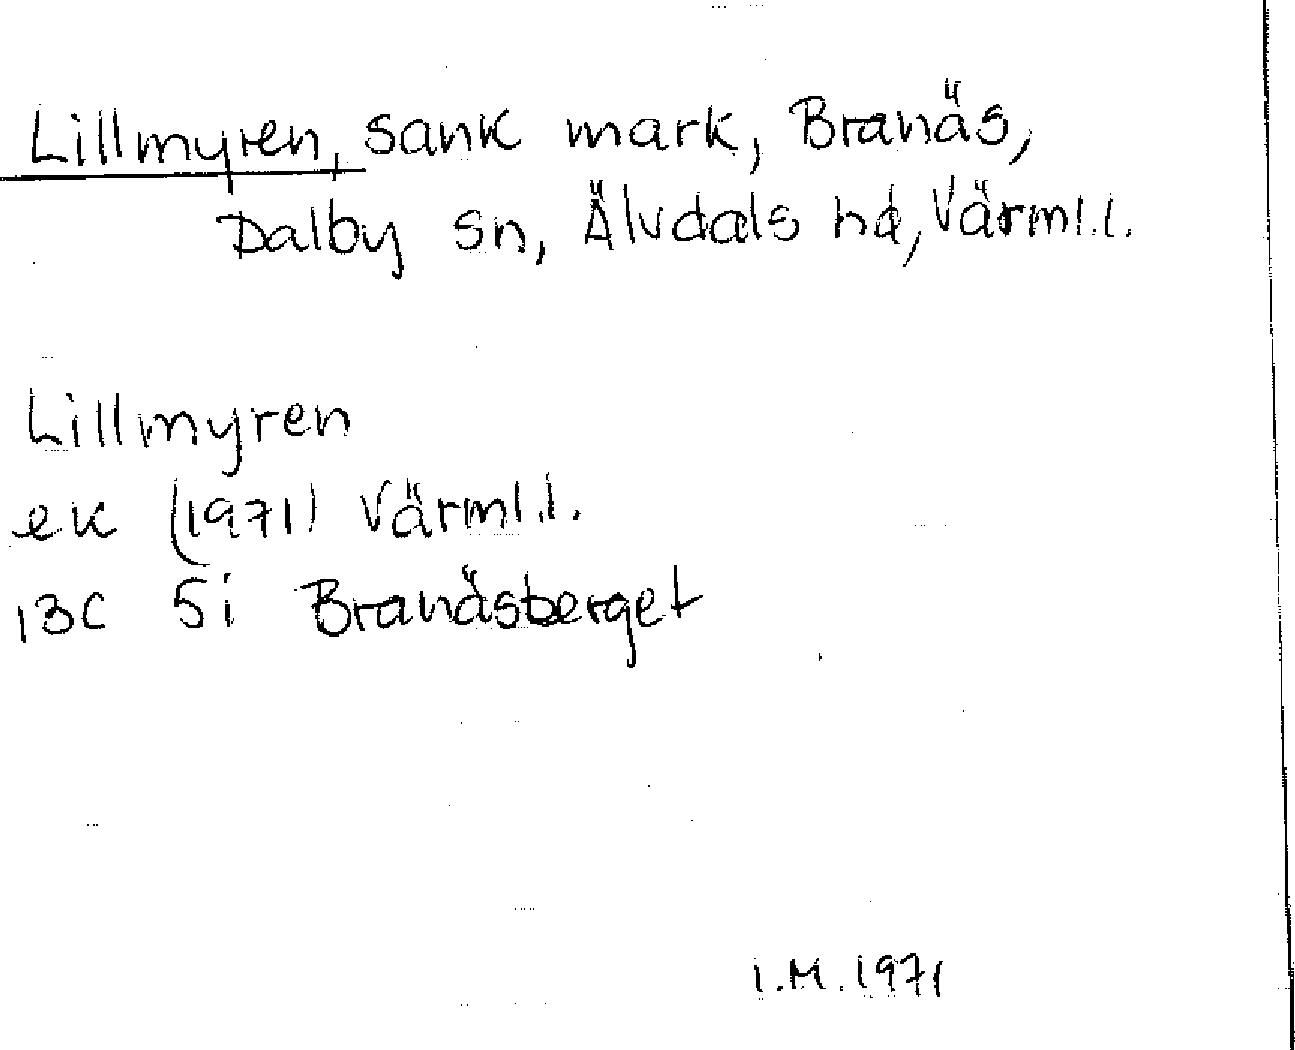 Lillmyren, sank mark, Branäs,
Dalby sn, Älvdals hd, Värml.l.
Lillmyren
ek (1971) Värml.l.
13C 5i Branäsberget
I.M.1971